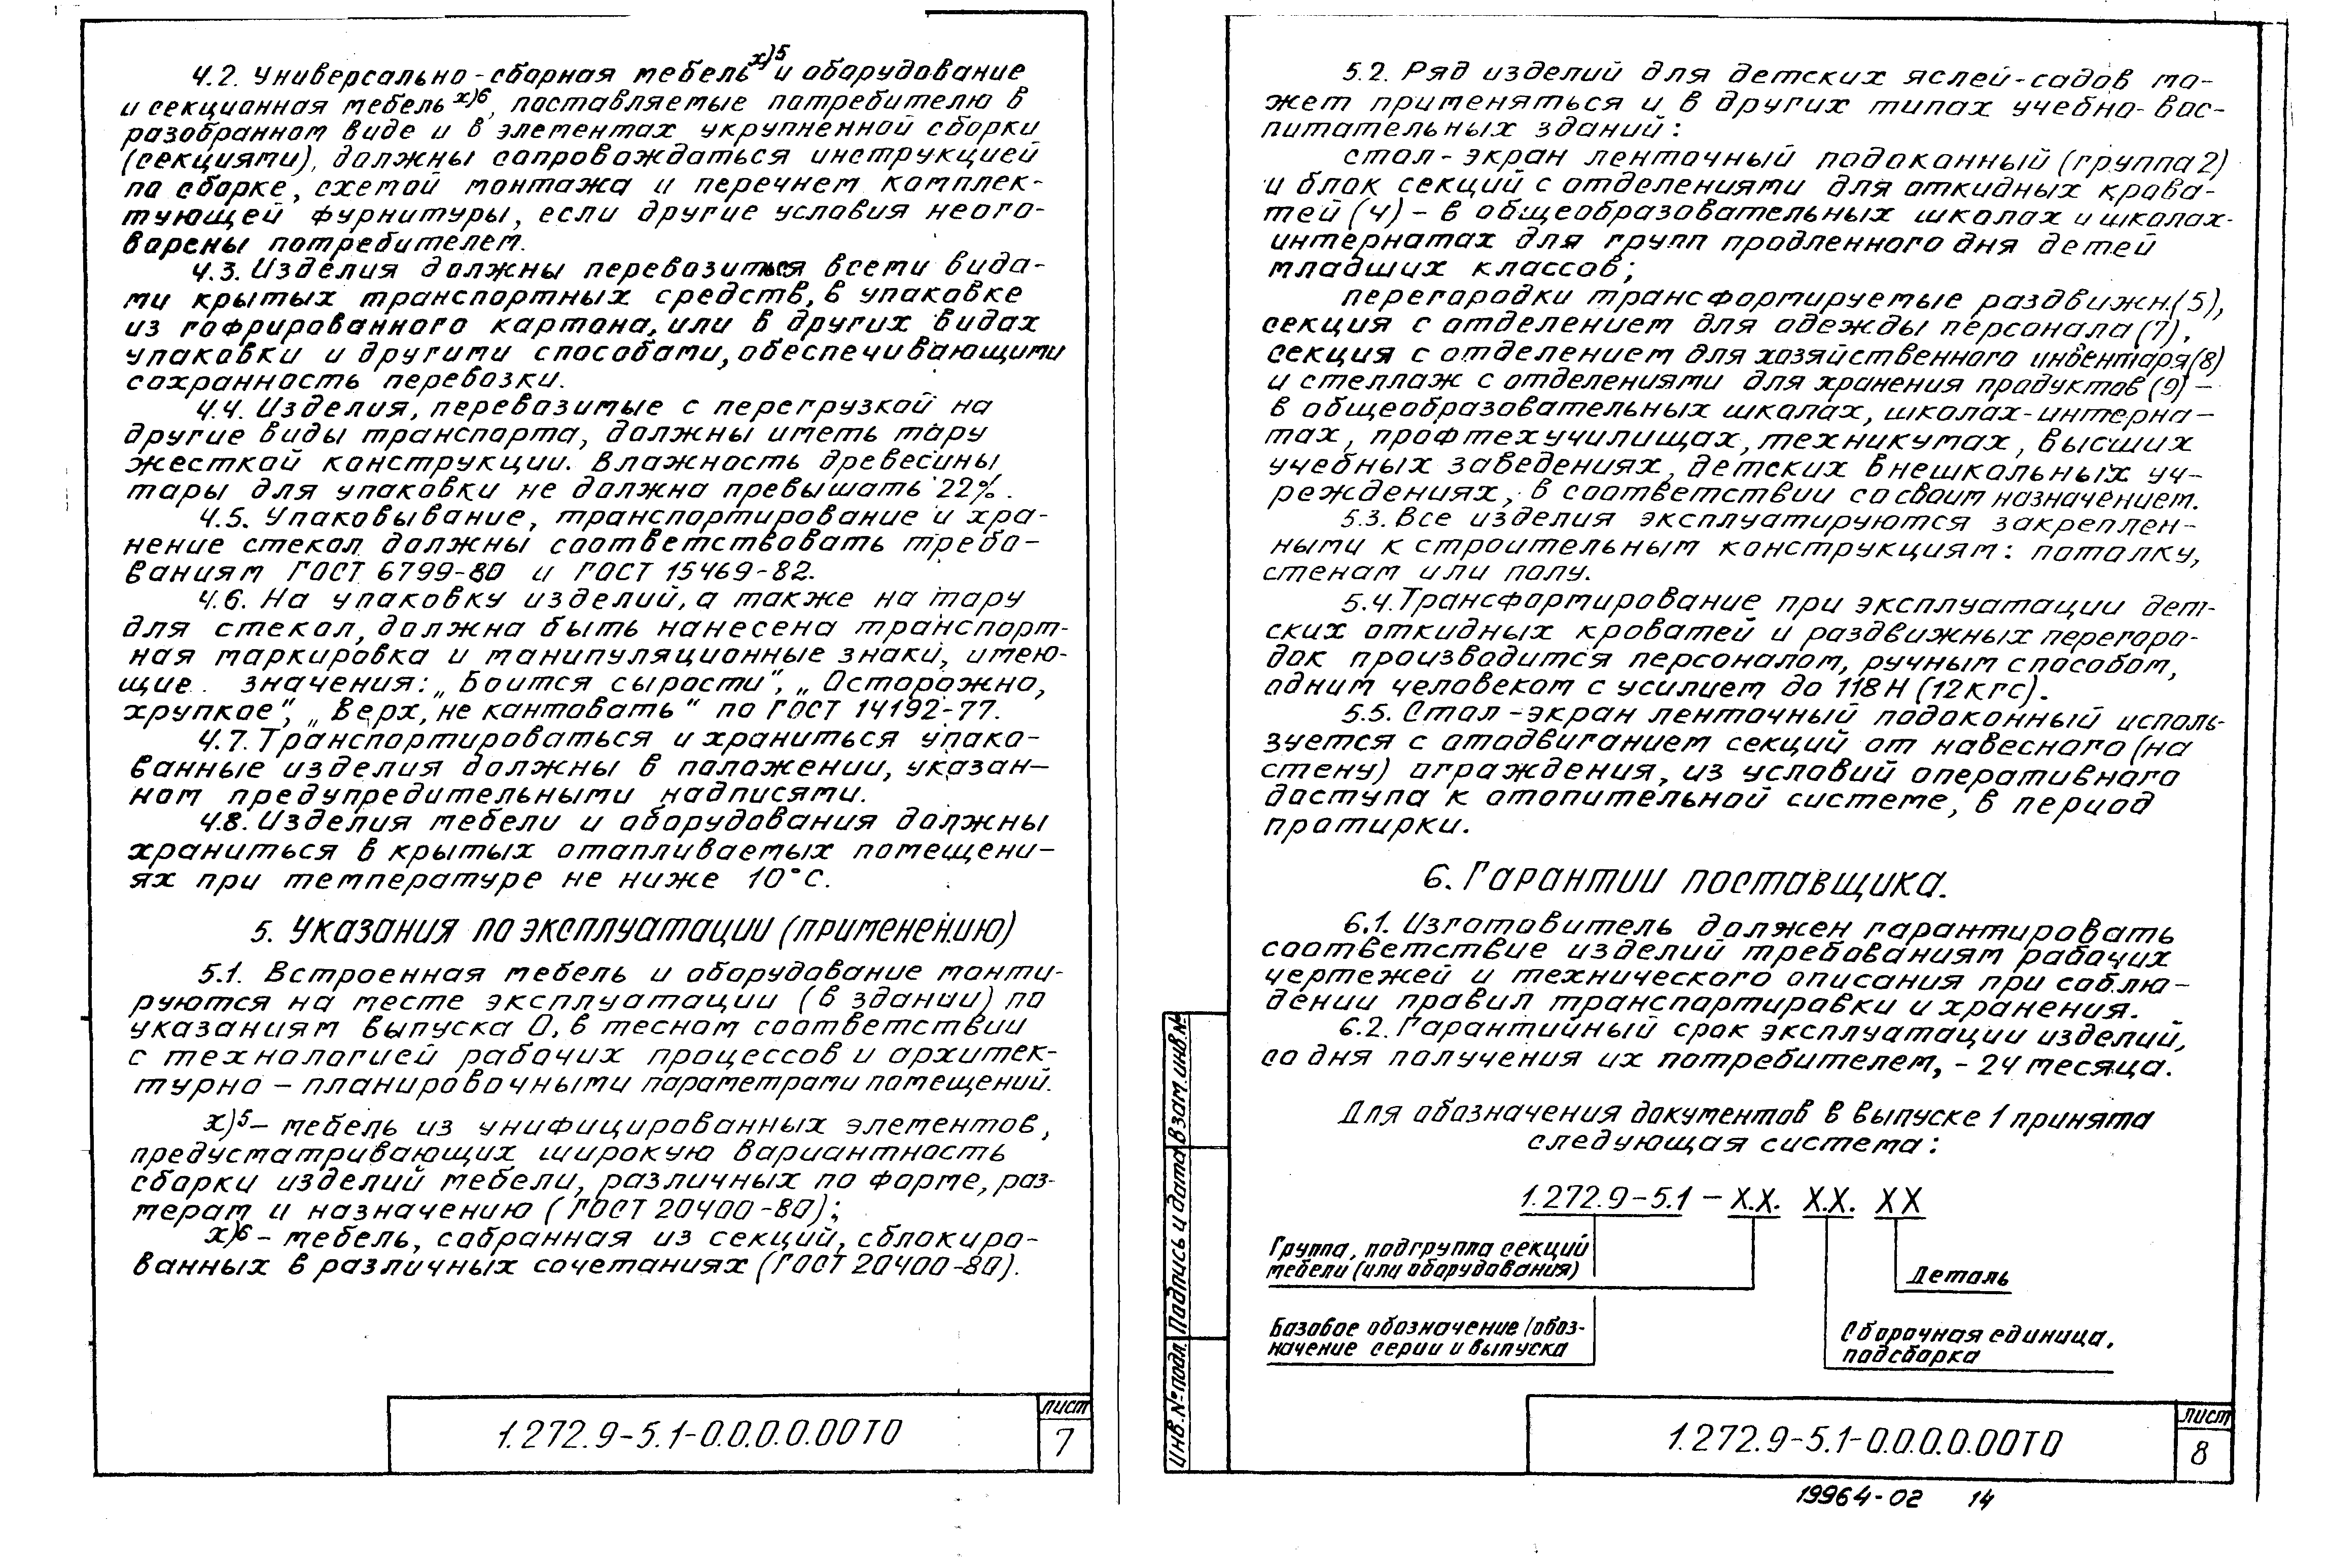 4.2. Универсально-сборная мебель х)5 и оборудование
и секционная мебель х)6, поставляемые потребителю в
разобранном виде и в элементах укрупненной сборки
(секциями), должны сопровождаться инструкцией
по сборке, схемой монтажа и перечнем комплек-
тующей фурнитуры, если другие условия неого-
ворены потребителем.
4.3. Изделия должны перевозиться всеми вида-
ми крытых транспортных средств, в упаковке
из гофрированного картона, или в других видах
упаковки и другими способами, обеспечивающими
сохранность перевозки.
4.4. Изделия, перевозимые с перегрузкой на
другие виды транспорта, должны иметь тару
жесткой конструкции. Влажность древесины
тары для упаковки не должна превышать 22%.
4.5. Упаковывание, транспортирование и хра-
нение стекол должны соответствовать требо-
ваниям ГОСТ 6799-80 и ГОСТ 15469-82.
4.6. На упаковку изделий, а также на тару
для стекол, должна быть нанесена транспорт-
ная маркировка и манипуляционные знаки, имею-
щие значения: „Боится сырости", „Осторожно,
хрупкое", „Верх, не кантовать" по ГОСТ 14192-77.
4.7. Транспортироваться и храниться упако-
ванные изделия должны в положении, указан-
ном предупредительными надписями.
4.8. Изделия мебели и оборудования должны
храниться в крытых отапливаемых помещени-
ях при температуре не ниже 10°С.
5. Указания по эксплуатации (применению)
5.1. Встроенная мебель и оборудование монти-
руются на месте эксплуатации (в здании) по
указаниям выпуска 0, в тесном соответствии
с технологией рабочих процессов и архитек-
турно-планировочными параметрами помещений.
х)5- мебель из унифицированных элементов,
предусматривающих широкую вариантность
сборки изделий мебели, различных по форме, раз-
мерам и назначению (ГОСТ 20400-80);
х)6- мебель, собранная из секций, сблокиро-
ванных в различных сочетаниях (ГОСТ 20400-80).
1.272.9-5.1-0.0.0.0.00ТО
лист
7
5.2. Ряд изделий для детских яслей-садов мо-
жет применяться и в других типах учебно-вос-
питательных зданий:
стол-экран ленточный подоконный (группа 2)
и блок секций с отделениями для откидных крова-
тей (4) - в общеобразовательных школах и школах-
интернатах для групп продленного дня детей
младших классов;
перегородки трансформируемые раздвижн.(5),
секция с отделением для одежды персонала (7),
секция с отделением для хозяйственного инвентаря (8)
и стеллаж с отделениями для хранения продуктов (9) -
в общеобразовательных школах, школах-интерна-
тах, профтехучилищах, техникумах, высших
учебных заведениях, детских внешкольных уч-
реждениях, в соответствии со своим назначением.
5.3. Все изделия эксплуатируются закреплен-
ными к строительным конструкциям: потолку,
стенам или полу.
5.4. Трансформирование при эксплуатации дет-
ских откидных кроватей и раздвижных перегоро-
док производится персоналом, ручным способом,
одним человеком с усилием до 118Н (12кгс).
5.5. Стол-экран ленточный подоконный исполь-
зуется с отодвиганием секций от навесного (на
стену) ограждения, из условий оперативного
доступа к отопительной системе, в период
протирки.
6. Гарантии поставщика.
6.1. Изготовитель должен гарантировать
соответствие изделий требованиям рабочих
чертежей и технического описания при соблю-
дении правил транспортировки и хранения.
6.2. Гарантийный срок эксплуатации изделий,
со дня получения их потребителем, - 24 месяца.
Для обозначения документов в выпуске 1 принята
следующая система:
1.272.9-5.1 - Х.Х. Х.Х. ХХ
Группа, подгруппа секций
мебели (или оборудования)
Деталь
Базовое обозначение (обоз-
начение серии и выпуска
Сборочная единица,
подсборка
Инв.№ подл. Подпись и дата Взам.инв.№
1.272.9-5.1-0.0.0.0.00ТО
лист
8
19964-02 14